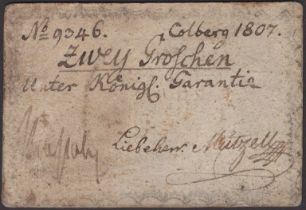 No 9346. Colberg 1807.
Zwey Groschen
Unter Königl. Garantie
Liebeherr Mützell